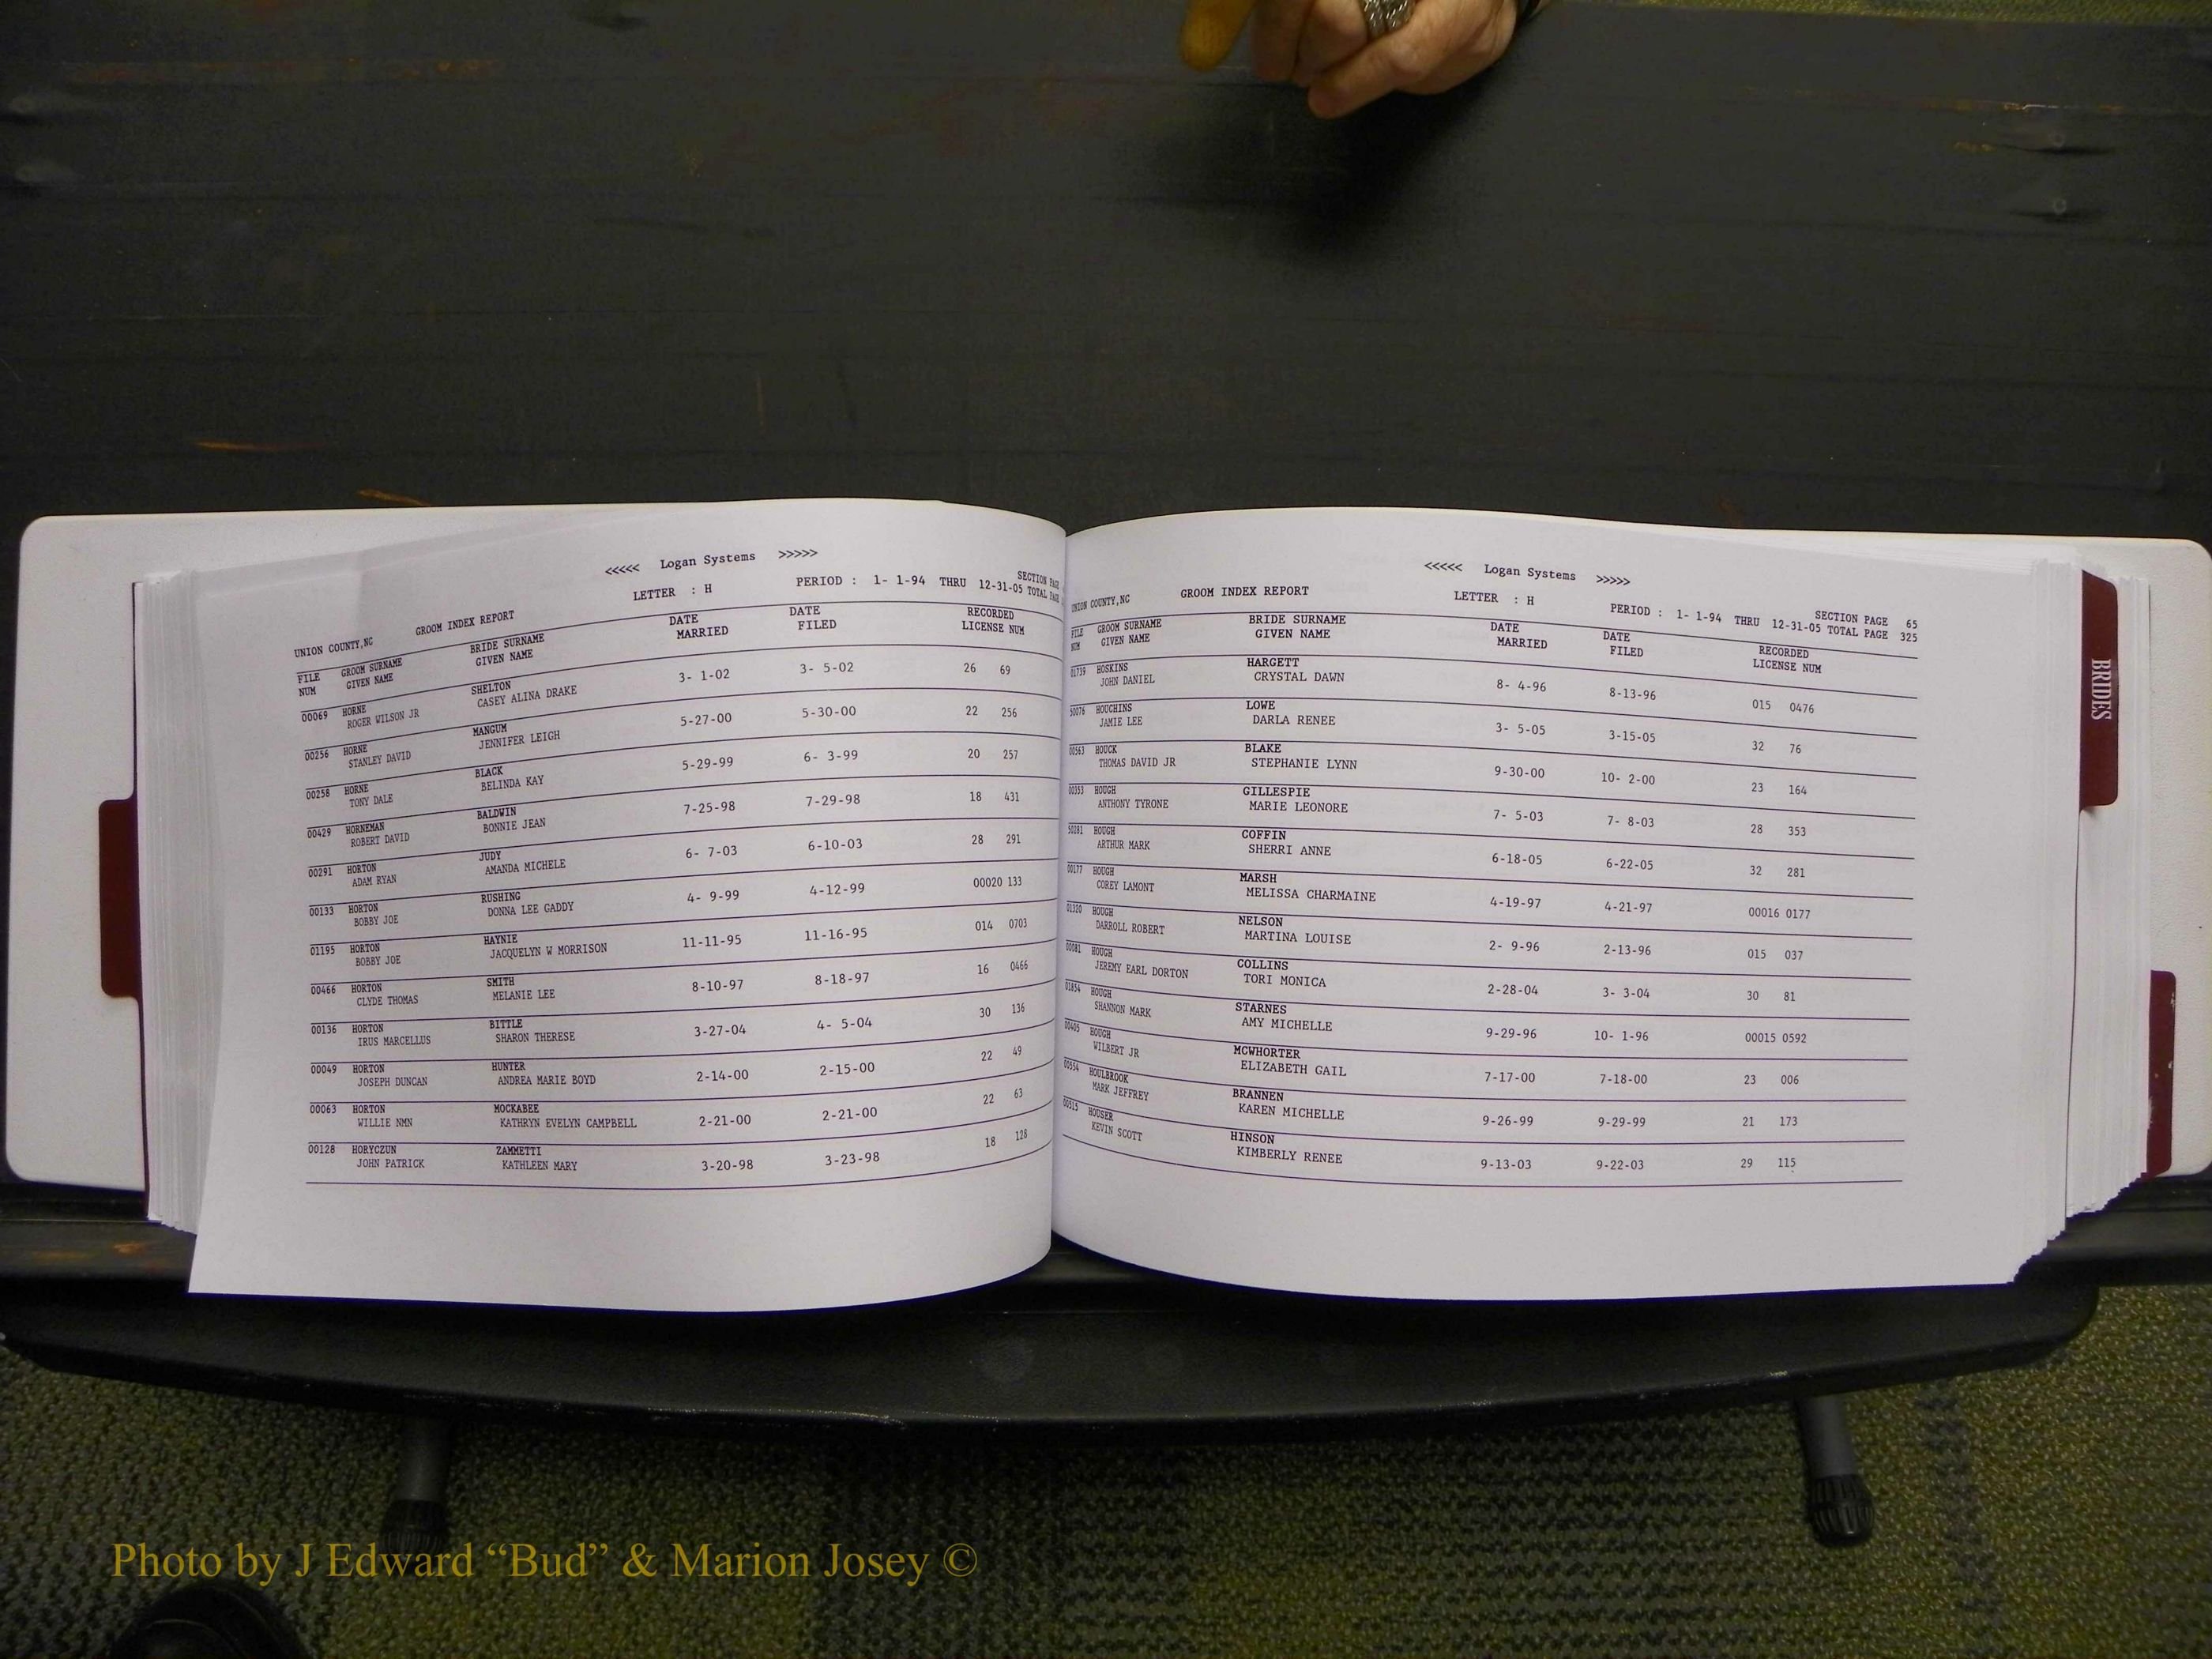 <<<<< Logan Systems >>>>>
UNION COUNTY,NC GROOM INDEX REPORT LETTER : H PERIOD : 1- 1-94 THRU 12-31-05
SECTION PAGE
TOTAL PAGE
FILE GROOM SURNAME BRIDE SURNAME DATE DATE RECORDED
NUM GIVEN NAME GIVEN NAME MARRIED FILED LICENSE NUM
00069 HORNE SHELTON 3- 1-02 3- 5-02 26 69
ROGER WILSON JR CASEY ALINA DRAKE
00256 HORNE MANGUM 5-27-00 5-30-00 22 256
STANLEY DAVID JENNIFER LEIGH
00258 HORNE BLACK 5-29-99 6- 3-99 20 257
TONY DALE BELINDA KAY
00429 HORNEMAN BALDWIN 7-25-98 7-29-98 18 431
ROBERT DAVID BONNIE JEAN
00291 HORTON JUDY 6- 7-03 6-10-03 28 291
ADAM RYAN AMANDA MICHELE
00133 HORTON RUSHING 4- 9-99 4-12-99 00020 133
BOBBY JOE DONNA LEE GADDY
01195 HORTON HAYNIE 11-11-95 11-16-95 014 0703
BOBBY JOE JACQUELYN W MORRISON
00466 HORTON SMITH 8-10-97 8-18-97 16 0466
CLYDE THOMAS MELANIE LEE
00136 HORTON BITTLE 3-27-04 4- 5-04 30 136
IRUS MARCELLUS SHARON THERESE
00049 HORTON HUNTER 2-14-00 2-15-00 22 49
JOSEPH DUNCAN ANDREA MARIE BOYD
00063 HORTON MOCKABEE 2-21-00 2-21-00 22 63
WILLIE NMN KATHRYN EVELYN CAMPBELL
00128 HORYCZUN ZAMMETTI 3-20-98 3-23-98 18 128
JOHN PATRICK KATHLEEN MARY
<<<<< Logan Systems >>>>>
UNION COUNTY,NC GROOM INDEX REPORT LETTER : H PERIOD : 1- 1-94 THRU 12-31-05
SECTION PAGE 65
TOTAL PAGE 325
FILE GROOM SURNAME BRIDE SURNAME DATE DATE RECORDED
NUM GIVEN NAME GIVEN NAME MARRIED FILED LICENSE NUM
01739 HOSKINS HARGETT 8- 4-96 8-13-96 015 0476
JOHN DANIEL CRYSTAL DAWN
50076 HOUCHINS LOWE 3- 5-05 3-15-05 32 76
JAMIE LEE DARLA RENEE
00563 HOUCK BLAKE 9-30-00 10- 2-00 23 164
THOMAS DAVID JR STEPHANIE LYNN
00353 HOUGH GILLESPIE 7- 5-03 7- 8-03 28 353
ANTHONY TYRONE MARIE LEONORE
50281 HOUGH COFFIN 6-18-05 6-22-05 32 281
ARTHUR MARK SHERRI ANNE
00177 HOUGH MARSH 4-19-97 4-21-97 00016 0177
COREY LAMONT MELISSA CHARMAINE
01320 HOUGH NELSON 2- 9-96 2-13-96 015 037
DARROLL ROBERT MARTINA LOUISE
00081 HOUGH COLLINS 2-28-04 3- 3-04 30 81
JEREMY EARL DORTON TORI MONICA
01854 HOUGH STARNES 9-29-96 10- 1-96 00015 0592
SHANNON MARK AMY MICHELLE
00405 HOUGH MCWHORTER 7-17-00 7-18-00 23 006
WILBERT JR ELIZABETH GAIL
00554 HOULBROOK BRANNEN 9-26-99 9-29-99 21 173
MARK JEFFREY KAREN MICHELLE
00515 HOUSER HINSON 9-13-03 9-22-03 29 115
KEVIN SCOTT KIMBERLY RENEE
BRIDES
Photo by J Edward “Bud” & Marion Josey ©